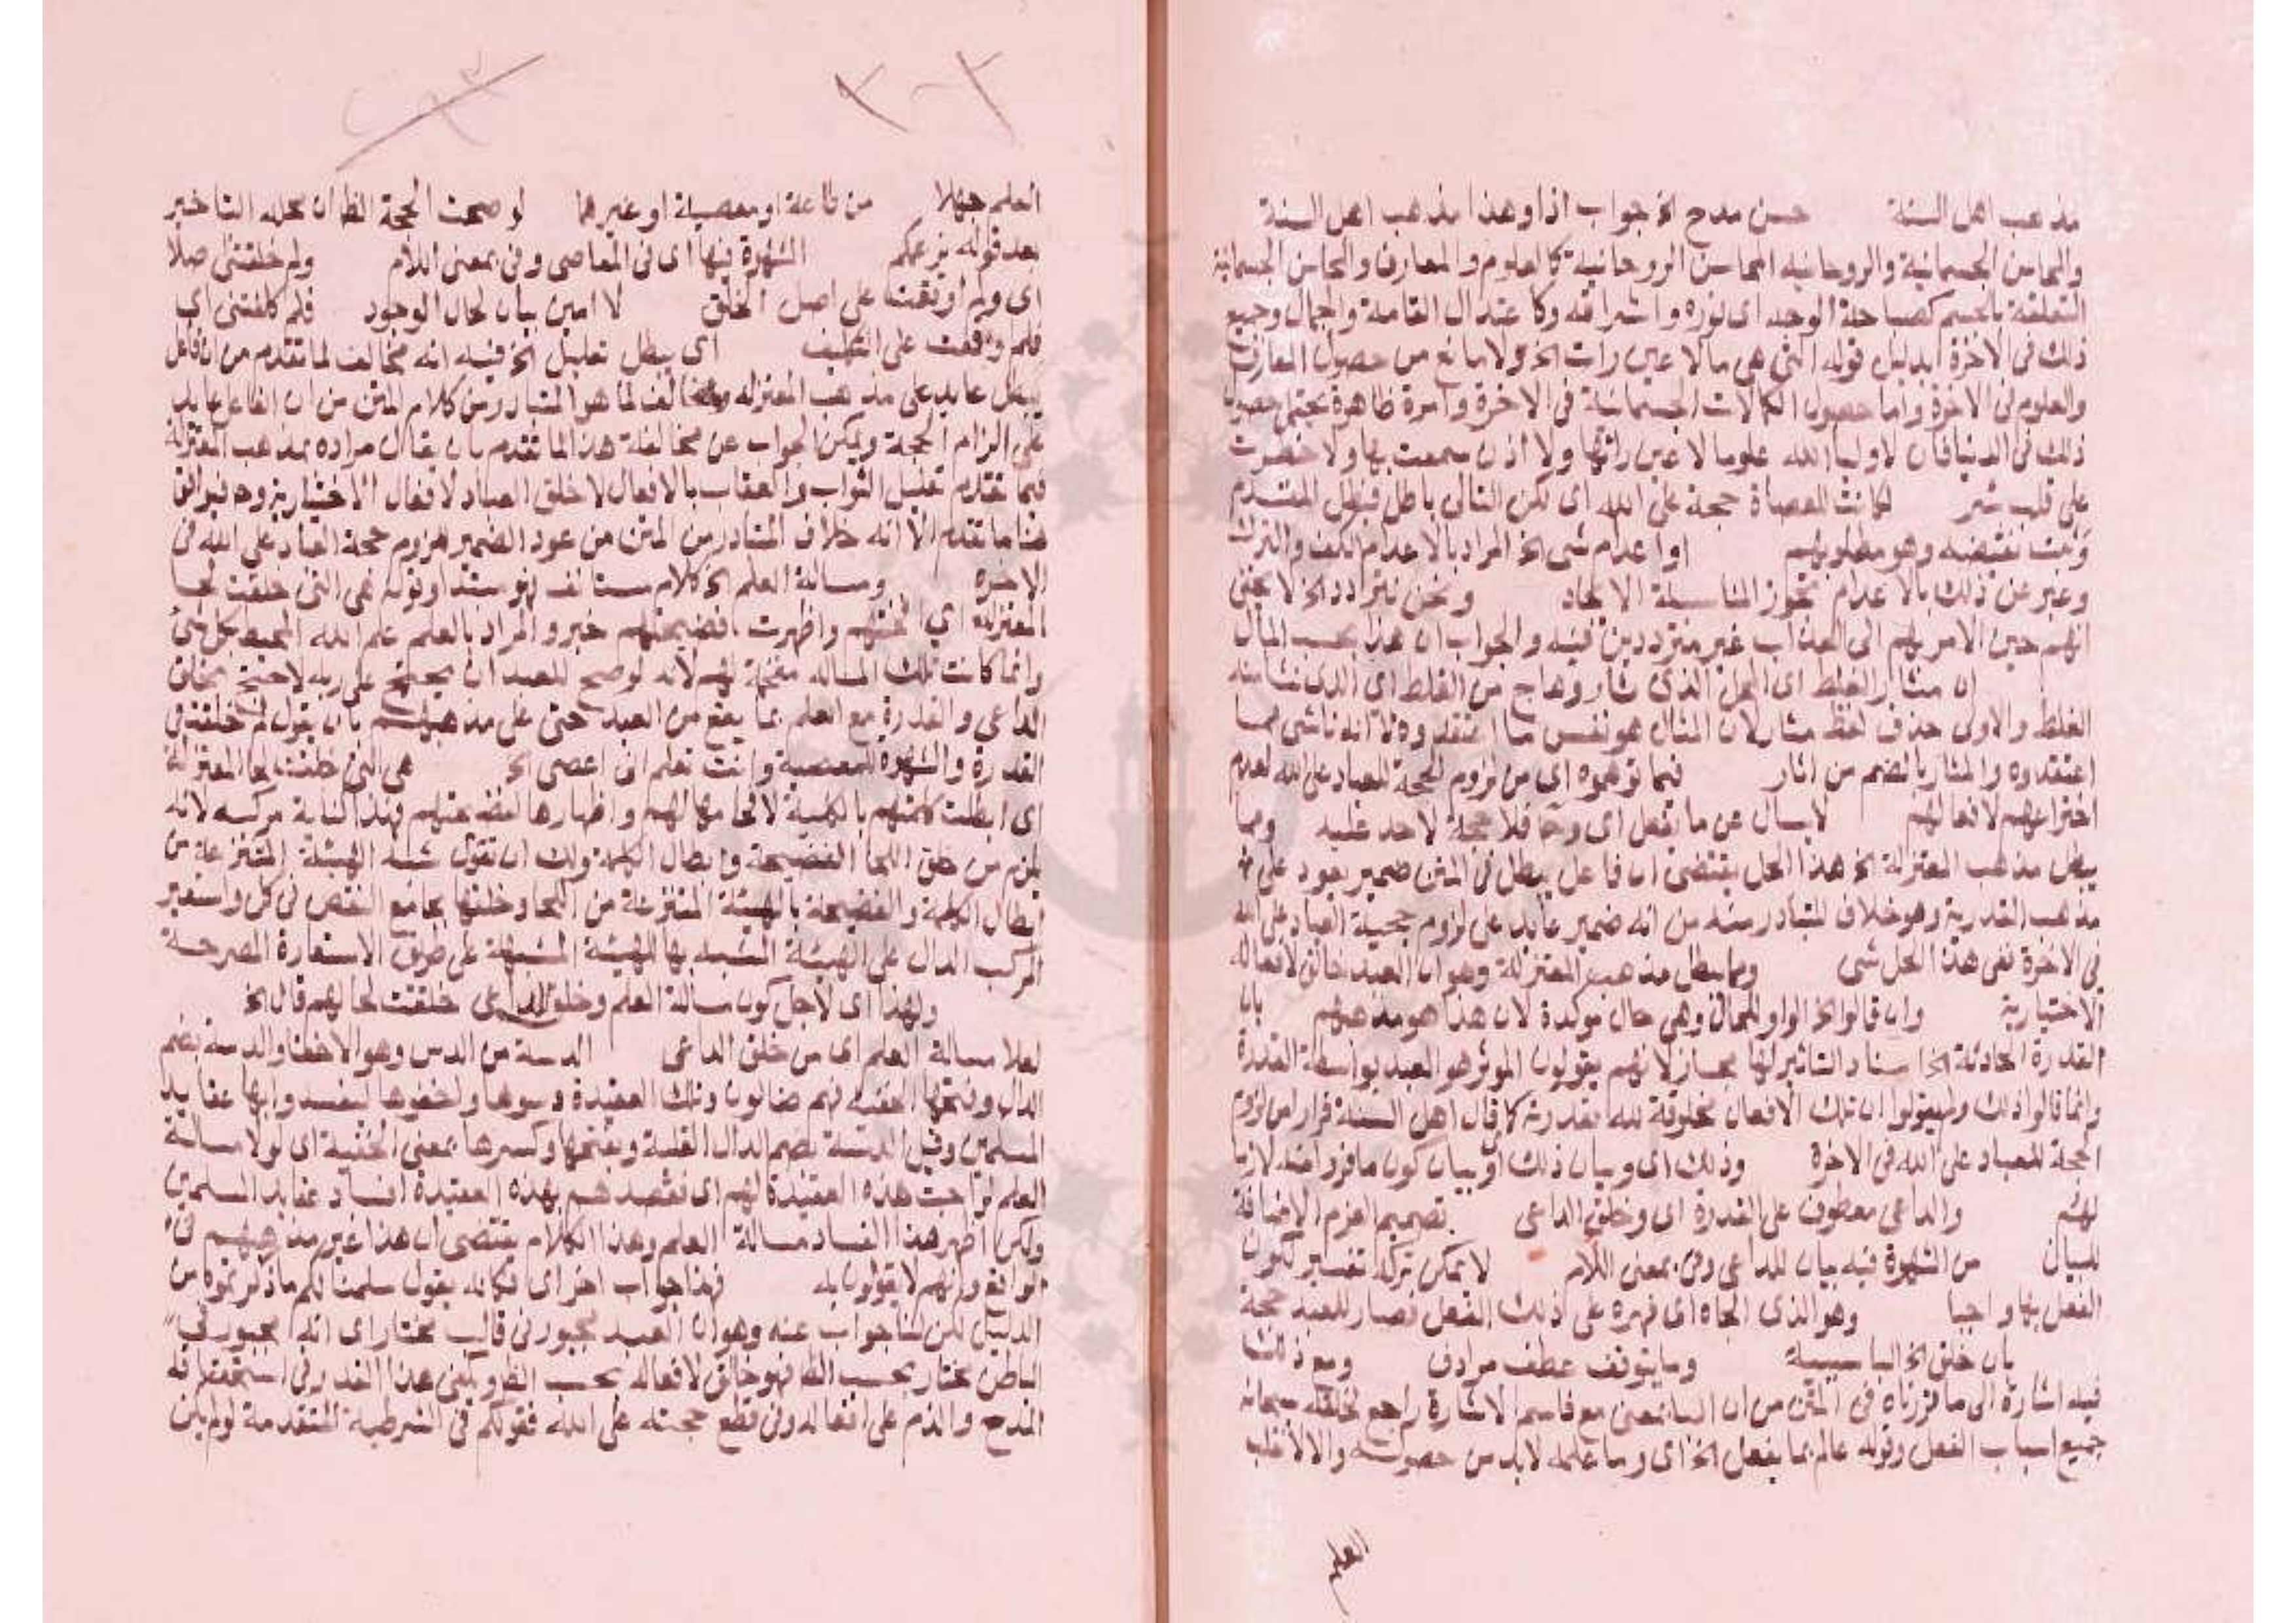 مذهب اهل السنة حسن مدح الخ جواب اذا وهذا مذهب اهل السنة
والمحاسن الجسمانية والروحانية المحاسن الروحانية كالعلوم والمعارف والمحاسن الجسمانية
المتعلقة بالجسم كصباحة الوجه اى نوره واشراقه وكاعتدال القامة واجمال وجميع
ذلك فى الاخرة بدليل قوله التى هى ما لا عين رات الخ ولا مانع من حصول المعارف
والعلوم فى الاخرة واما حصول الكمالات الجسمانية فى الاخرة وامرة ظاهرة يحتمل حصول
ذلك فى الدنيا فان لاوليا الله علوما لا عين راتها ولا اذن سمعت بها ولا خطرت
على قلب بشر لكانت للعصاة حجة على الله اى لكن التالى باطل فبطل المقدم
وثبت نقيضه وهو مطلوبهم اواعدام شى الخ المراد بالاعدام الكف والترك
وعبر عن ذلك بالاعدام تجوز المناسبة الايجاد ونحن نتردد الخ لا يخفى
انهم حين الامر بهم الى العذاب غير مترددين فيه والجواب ان هذا بحسب المآل
ان مثار الغلط اى المحل الذى ثار وهاج من الغلط اى الذى نشا منه
الغلط والاولى حذف لفظ مثار لان المثال هو نفس ما اعتقدوه لا انه ناشى مما
اعتقدوه والمثار بالضم من اثار فيما توهموه اى من لزوم الحجة للعباد على الله لعدم
اختراعهم لافعالهم لا يسال عن ما يفعل اى وح فلا حجة لاحد عليه ومما
يبطل مذهب المعتزلة الخ هذا الحل يقتضى ان فاعل يبطل فى المتن ضمير يعود على
مذهب القدرية وهو خلاف المتبادر منه من انه ضمير عائد على لزوم حجية العباد على الله
فى الاخرة ففى هذا الحل شى ومما يبطل مذهب المعتزلة وهو ان العبد خالق لافعاله
الاختيارية وان قالوا الخ الواو للحال وهى حال موكدة لان هذا هو مذهبهم بان
القدرة الحادثة الخ اسناد التاثير لها مجاز لانهم يقولون الموثر هو العبد بواسطة القدرة
وانما قالوا ذلك ولم يقولوا ان تلك الافعال مخلوقة لله بقدرته كما قال اهل السنة فرارا من لزوم
الحجة للعباد على الله فى الاخرة وذلك اى وبيان ذلك اى بيان كون ما فروا منه لازما
لهم والداعى معطوف على القدرة اى وخلق الداعى تصميم العزم الاضافة
للبيان من الشهوة فيه بيان للداعى وفى بمعنى اللام لا يمكن تركه تفسير لكون
الفعل بها واجبا وهو الذى الجاه اى قهره على ذلك الفعل فصار للعبد حجة
بان خلق الخ البا سببية وما يتوقف عطف مرادف ومع ذلك
فيه اشارة الى ما قررناه فى المتن من ان البا بمعنى مع فاسم الاشارة راجع لخلقه سبحانه
جميع اسباب الفعل وقوله عالم بما يفعل الخ اى وما علمه لا بد من حصوله والا لانقلب
العلم
العلم جهلا من طاعة او معصية او غيرهما لو صحت الحجة الظ ان محله التاخير
بعد قوله بزعمكم الشهوة فيها اى فى المعاصى وفى بمعنى اللام ولم خلقتنى صلا
اى ولم اوقفت على اصل الخلق لا امين بيان لحال الوجود فلم كلفتنى اى
فلم وقعت على التكليف اى يبطل تعليل الخ فيه انه مخالف لما تقدم من ان فاعل
يبطل عايد على مذهب المعتزله ومخالف لما هو المتبادر من كلام المتن من ان الفاعل عايد
على الزام الحجة ويمكن الجواب عن مخالفة هذا لما تقدم بان يقال مراده بمذهب المعتزلة
فيما تقدم تعليل الثواب والعقاب بالافعال لا خلق العباد لافعال الاختيارية وح فيوافق
هنا ما تقدم الا انه خلاف المتبادر من المتن من عود الضمير للزوم حجة العباد على الله فى
الاخرة ومسالة العلم الخ كلام مستانف فهو مبتدا وقوله هى التى حلقت لحا
المعتزلة اي اخزتهم واظهرت فضيحتهم خبر والمراد بالعلم علم الله المحيط بكل شى
وانما كانت تلك المسالة مفحمة لهم لانه لو صح للعبد ان يحتج على ربه لاحتج بخلق
الداعى والقدرة مع العلم بما يقع من العبد حتى على مذهبهم بان يقول لم خلقت فى
القدرة والشهوة للمعصية وانت تعلم انى اعصى الخ هى التى حلقت لحا المعتزلة
اى ابطلت كلمتهم بالكلية لا لحا مها لهم واظهارها فضيحتهم فهذا كناية مركبه لانه
يلزم من حلق اللحا الفضيحة وابطال الكلمة ولك ان تقول شبه الهيئة المنتزعة من
ابطال الكلمة والفضيحة بالهيئة المنتزعة من اللحا وحلقها بجامع النقص فى كل واستعير
المركب الدال على الهيئة المشبه بها للهيئة المشبهة على طريق الاستعارة المصرحة
ولهذا اى لاجل كون مسالة العلم وخلق الداعى حلقت لحاهم قال الخ
لولا مسالة العلم اى من خلق الداعى الدسة من الدس وهو الاخفا والدسة بضم
الدال وفتحها الخفية فهم ضالون وتلك العقيدة دسوها واخفوها ليفسدوا بها عقايد
المسلمين وقيل الدسة بضم الدال الفلسة وبفتحها وكسرها بمعنى الخفية اى لولا مسالة
العلم لراجت هذه العقيدة لهم اى فقصدهم بهذه العقيدة افساد عقايد المسلمين
ولكن اظهر هذا الفساد مسالة العلم وهذا الكلام يقتضى ان هذا غير مذهبهم فى
الواقع وانهم لا يقولون به فهذا جواب اخر اى فكانه يقول سلمنا لكم ما ذكرتموه من
الدليل لكن لنا جواب عنه وهو ان العبد مجبور فى قالب مختار اى انه مجبور فى
الباطن مختار بحسب الظ فهو خالق لافعاله بحسب الظ ويكفى هذا القدر فى استحقاقه
المدح والذم على افعاله وفى قطع حجته على الله فقولكم فى الشرطية المتقدمة لو لم يكن